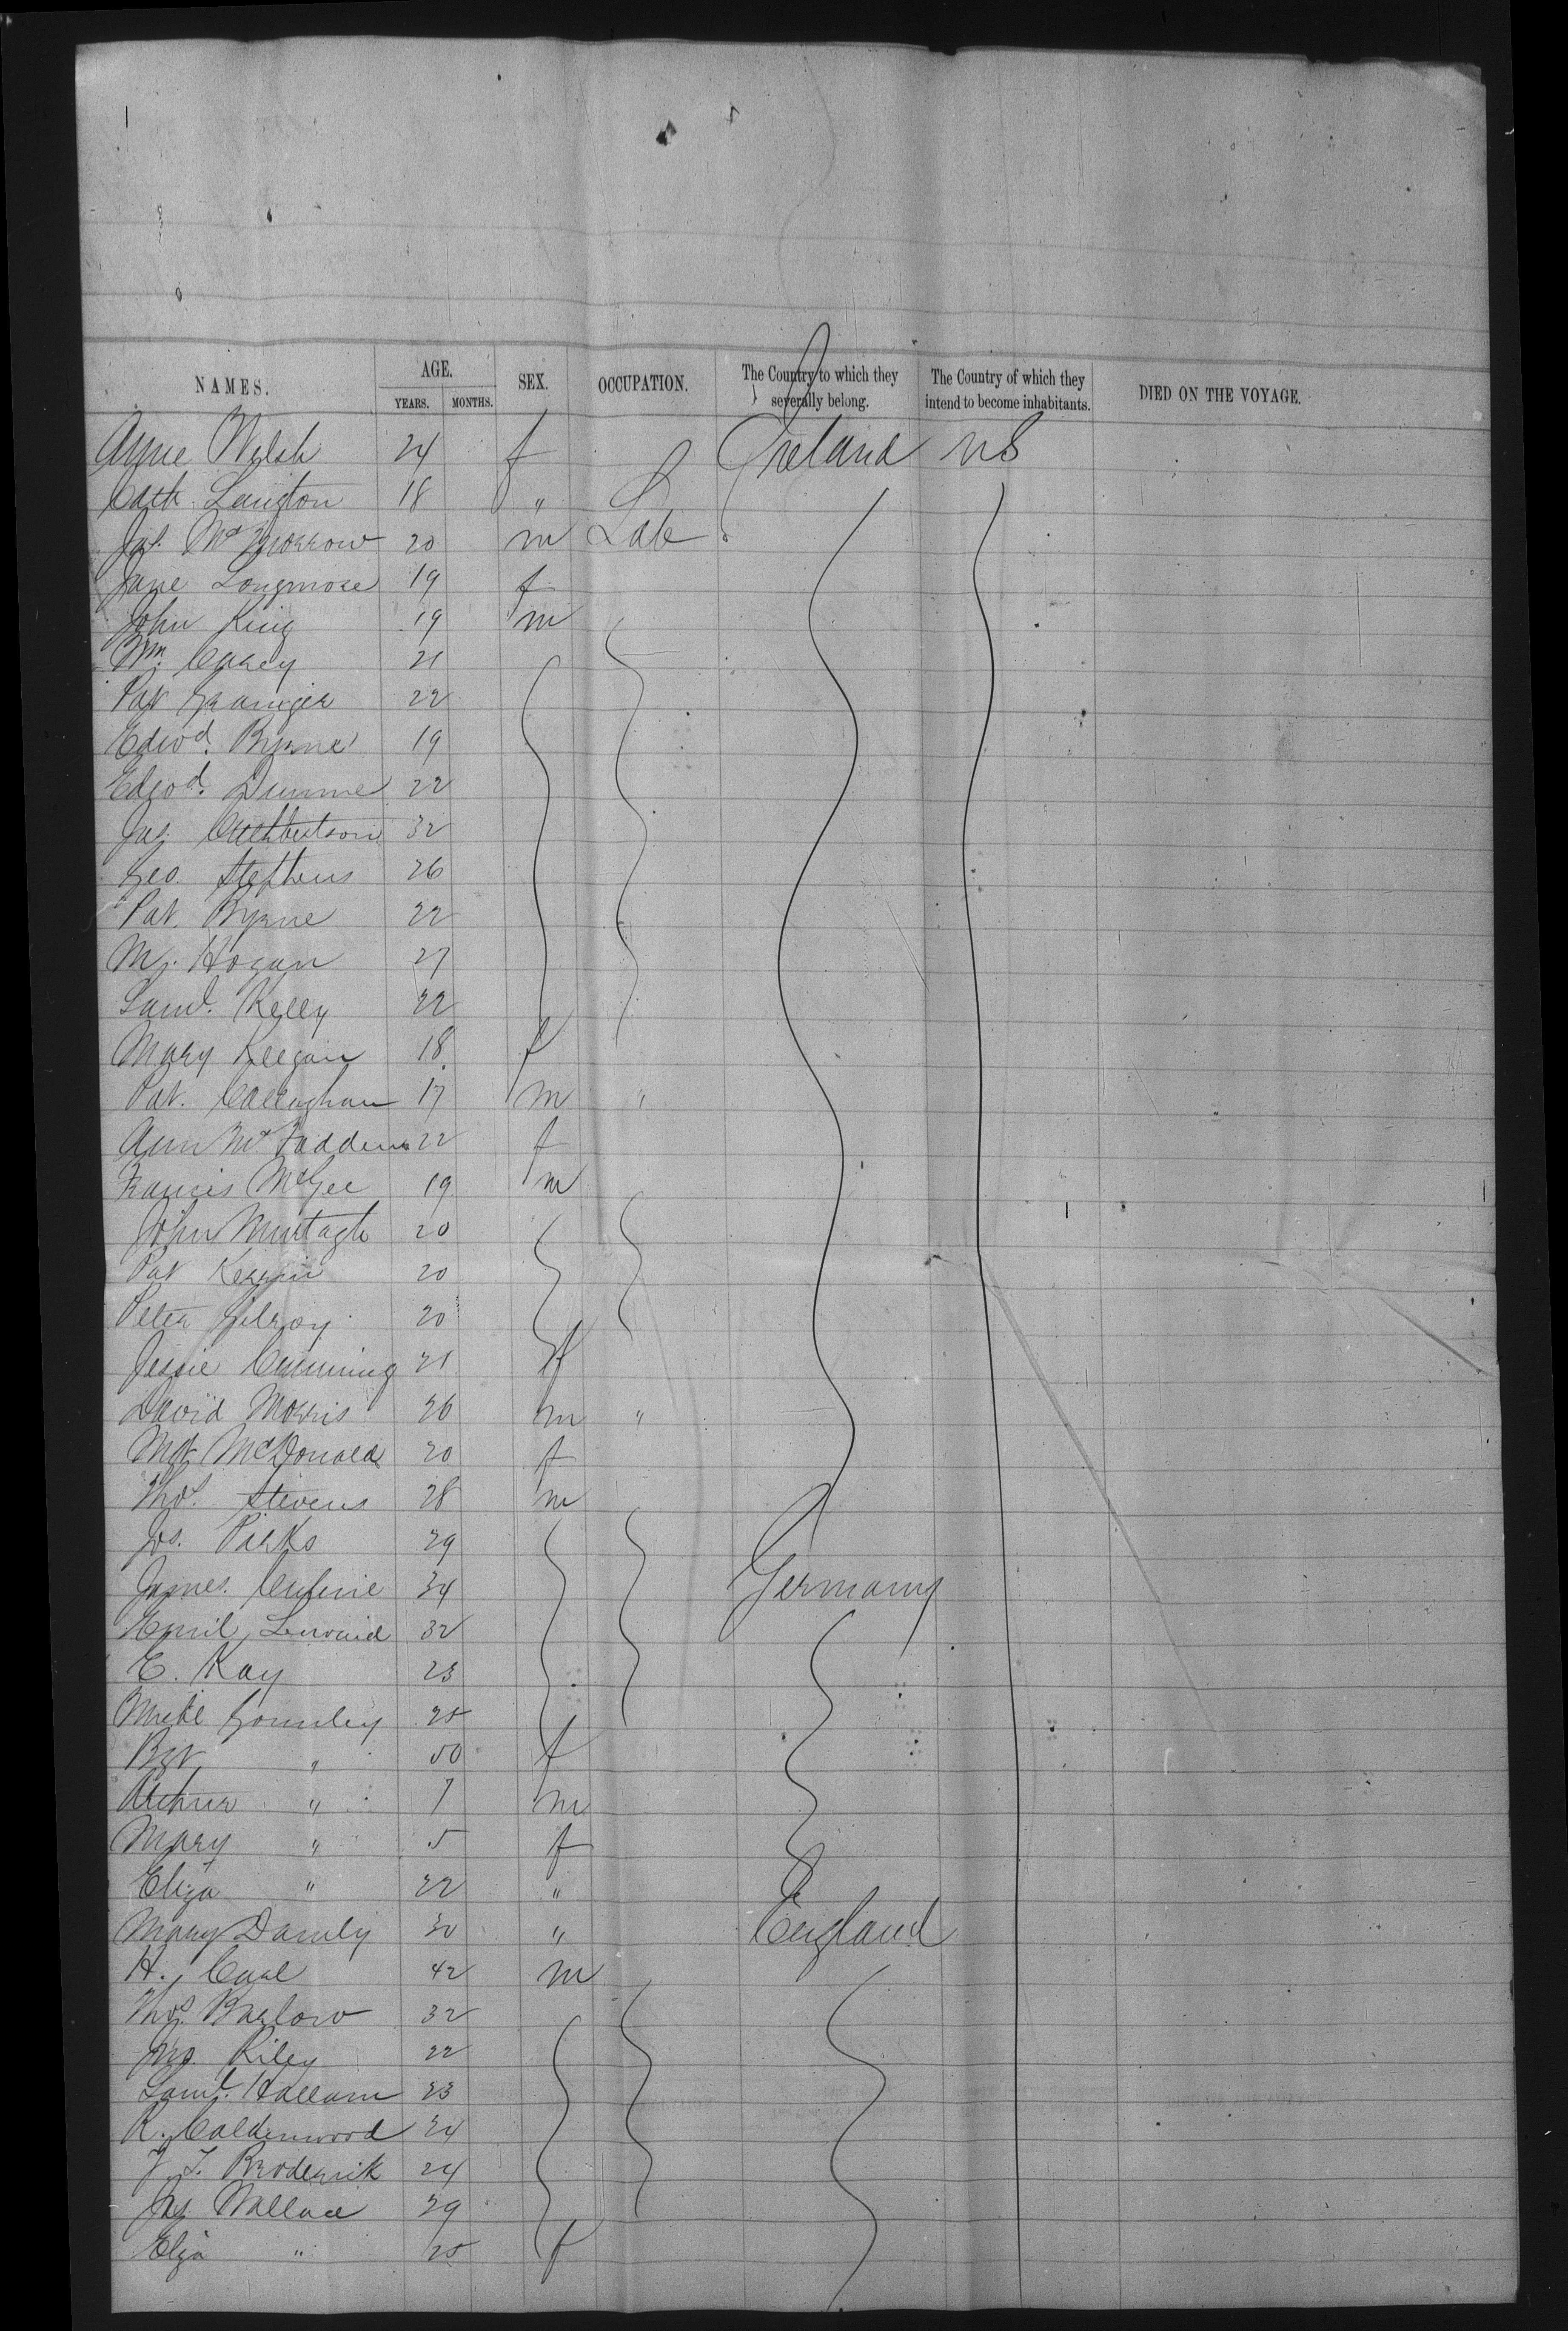 NAMES. AGE. SEX. OCCUPATION. The Country to which they severally belong. The Country of which they intend to become inhabitants. DIED ON THE VOYAGE.
YEARS. MONTHS.
Anne Welsh 24 f Ireland US
Cath. Langton 18 "
Jas. McMorrow 20 m Lab
Jane Longmore 19 f
John King 19 m
Wm. Carey 21
Pat Grainger 22
Edwd. Byrne 19
Edwd. Dunne 22
Jas. Cuthbertson 32
Geo. Stephens 26
Pat. Byrne 22
M. Hogan 27
Saml. Kelly 22
Mary Keegan 18 f
Pat. Callaghan 17 m "
Ann McFadden 22 f
Francis McGee 19 m
John Murtagh 20
Pat Kerrin 20
Peter Gilroy 20
Jessie Cumming 21 f
David Morris 26 m "
Mgt McDonald 20 f
Thos. Stevens 28 m
Jos. Parks 29
James 34 Germany
Emil 32
E. Kay 23
Mike Gormley 25
Bgt " 50 f
Arthur " 7 m
Mary " 5 f
Eliza " 22 "
Mary Darnly 30 " England
H. Carl 42 m
Thos. Barlow 32
Jno. Riley 22
Saml. Hallam 23
R. Calderwood 24
J. T. Broderick 24
Jas Wallace 29
Eliza " 25 f